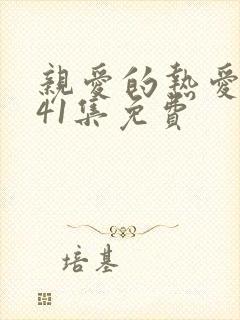 親愛的熱愛
41集免費
培基